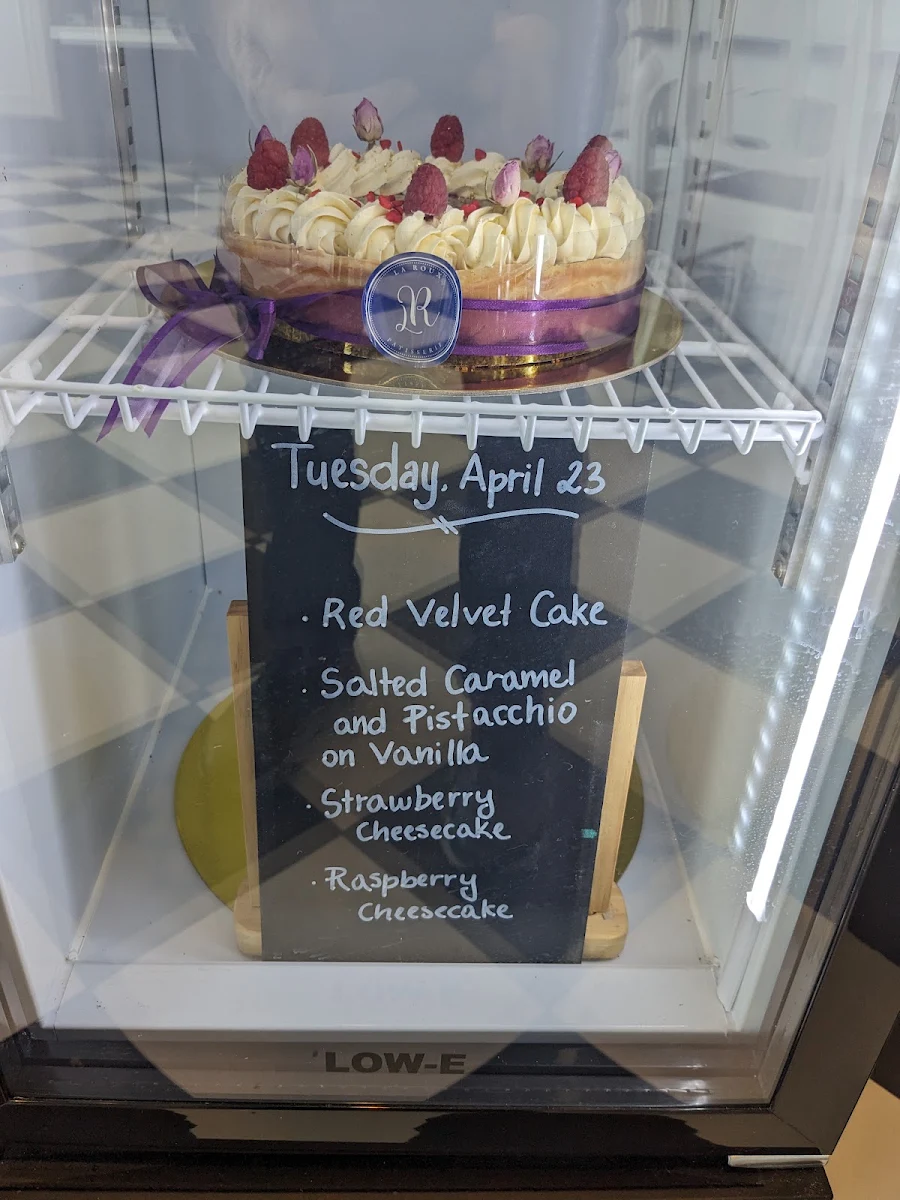 LA ROUX
LR
PATISSERIE
Tuesday, April 23
· Red Velvet Cake
· Salted Caramel
and Pistacchio
on Vanilla
· Strawberry
Cheesecake
· Raspberry
Cheesecake
LOW-E